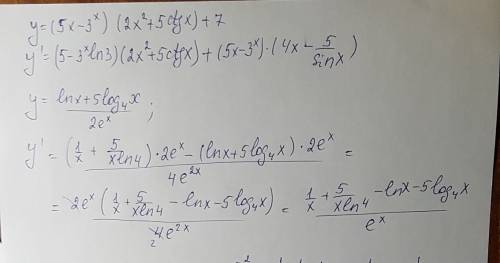 y = (5x - 3^x) (2x² + 5ctgx) + 7
y' = (5 - 3^x ln3)(2x² + 5ctgx) + (5x - 3^x)·(4x - 5/sinx)
y = (lnx + 5log₄x)/(2e^x) ;
y' = ((1/x + 5/(xln4))·2e^x - (lnx + 5log₄x)·2e^x)/(4e^(2x)) =
= (2e^x (1/x + 5/(xln4) - lnx - 5log₄x))/(4e^(2x)) = (1/x + 5/(xln4) - lnx - 5log₄x)/(e^x)